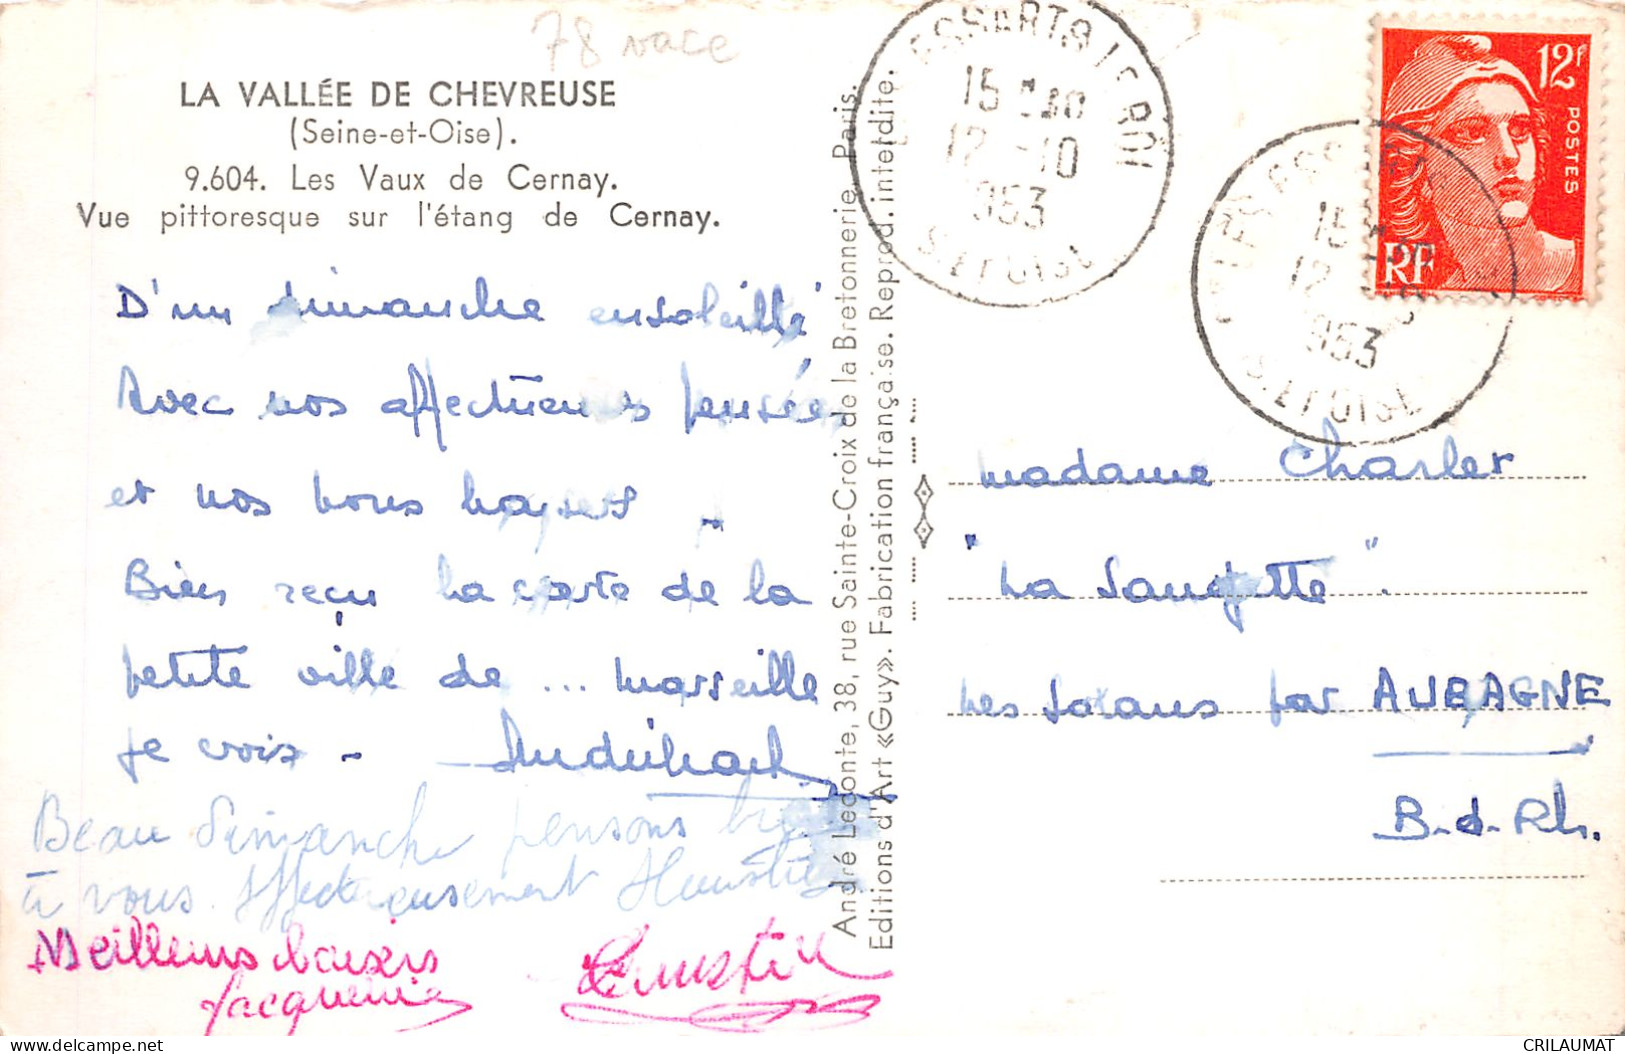 78 vace
LA VALLÉE DE CHEVREUSE
(Seine-et-Oise).
9.604. Les Vaux de Cernay.
Vue pittoresque sur l'étang de Cernay.
D'un dimanche ensoleillé
Avec nos affectueuses pensées
et nos bons baisers -
Bien reçu la carte de la
petite ville de ... Marseille
je crois -
Beau Dimanche pensons bien
à vous. Affectueusement
Meilleurs baisers
Jacqueline
André Leconte, 38, rue Sainte-Croix de la Bretonnerie, Paris.
Editions d'Art «Guy». Fabrication française. Reprod. interdite.
ESSARTS LE ROI
15 30
12 -10
1953
S. ET OISE
12F
POSTES
RF
LES ESSARTS
15 30
12 - 10
1953
S. ET OISE
Madame Charles
"La Saugette".
Les Solans par AUBAGNE
B.d.Rh.
delcampe.net
CRILAUMAT